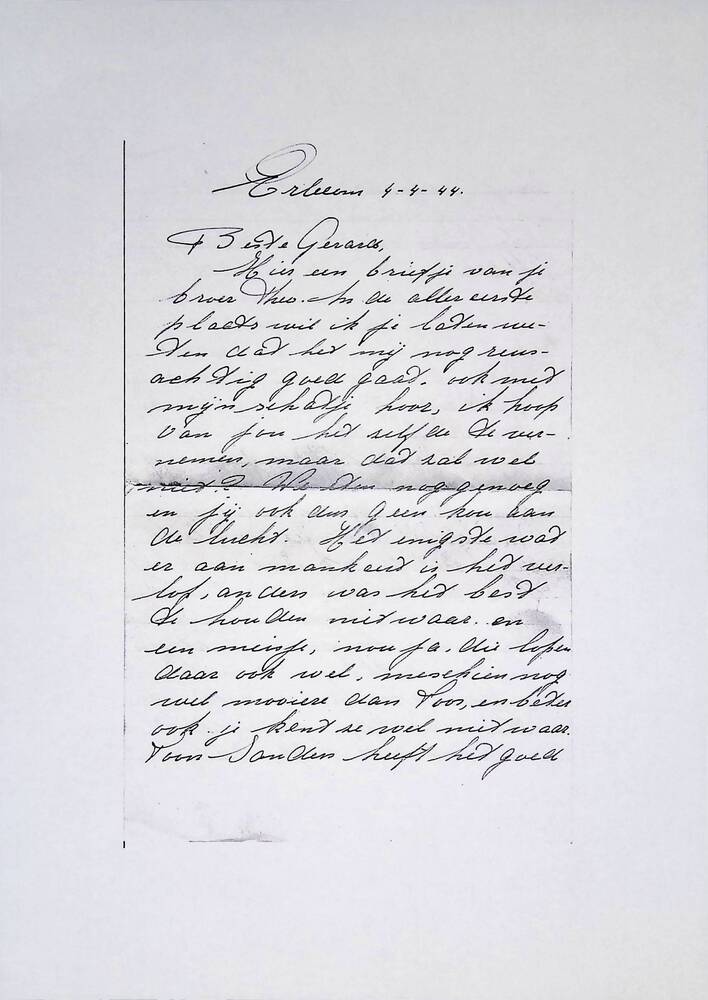 Erlecom 4-4-44.
Beste Gerard,
Hier een briefje van je
broer Theo. In de aller eerste
plaats wil ik je laten we-
ten dat het mij nog reus-
achtig goed gaat. ook met
mijn schatje hoor, ik hoop
van jou het zelfde te ver-
nemen, maar dat zal wel
niet? We eten nog genoeg
en jij ook dus geen kou aan
de lucht. Het enigste wat
er aan mankeert is het ver-
lof, anders was het best
te houden niet waar. en
een meisje, nou ja, die lopen
daar ook wel, meschien nog
wel mooiere dan Toos, en beter
ook. je kent ze wel niet waar.
Toos Sanders heeft het goed